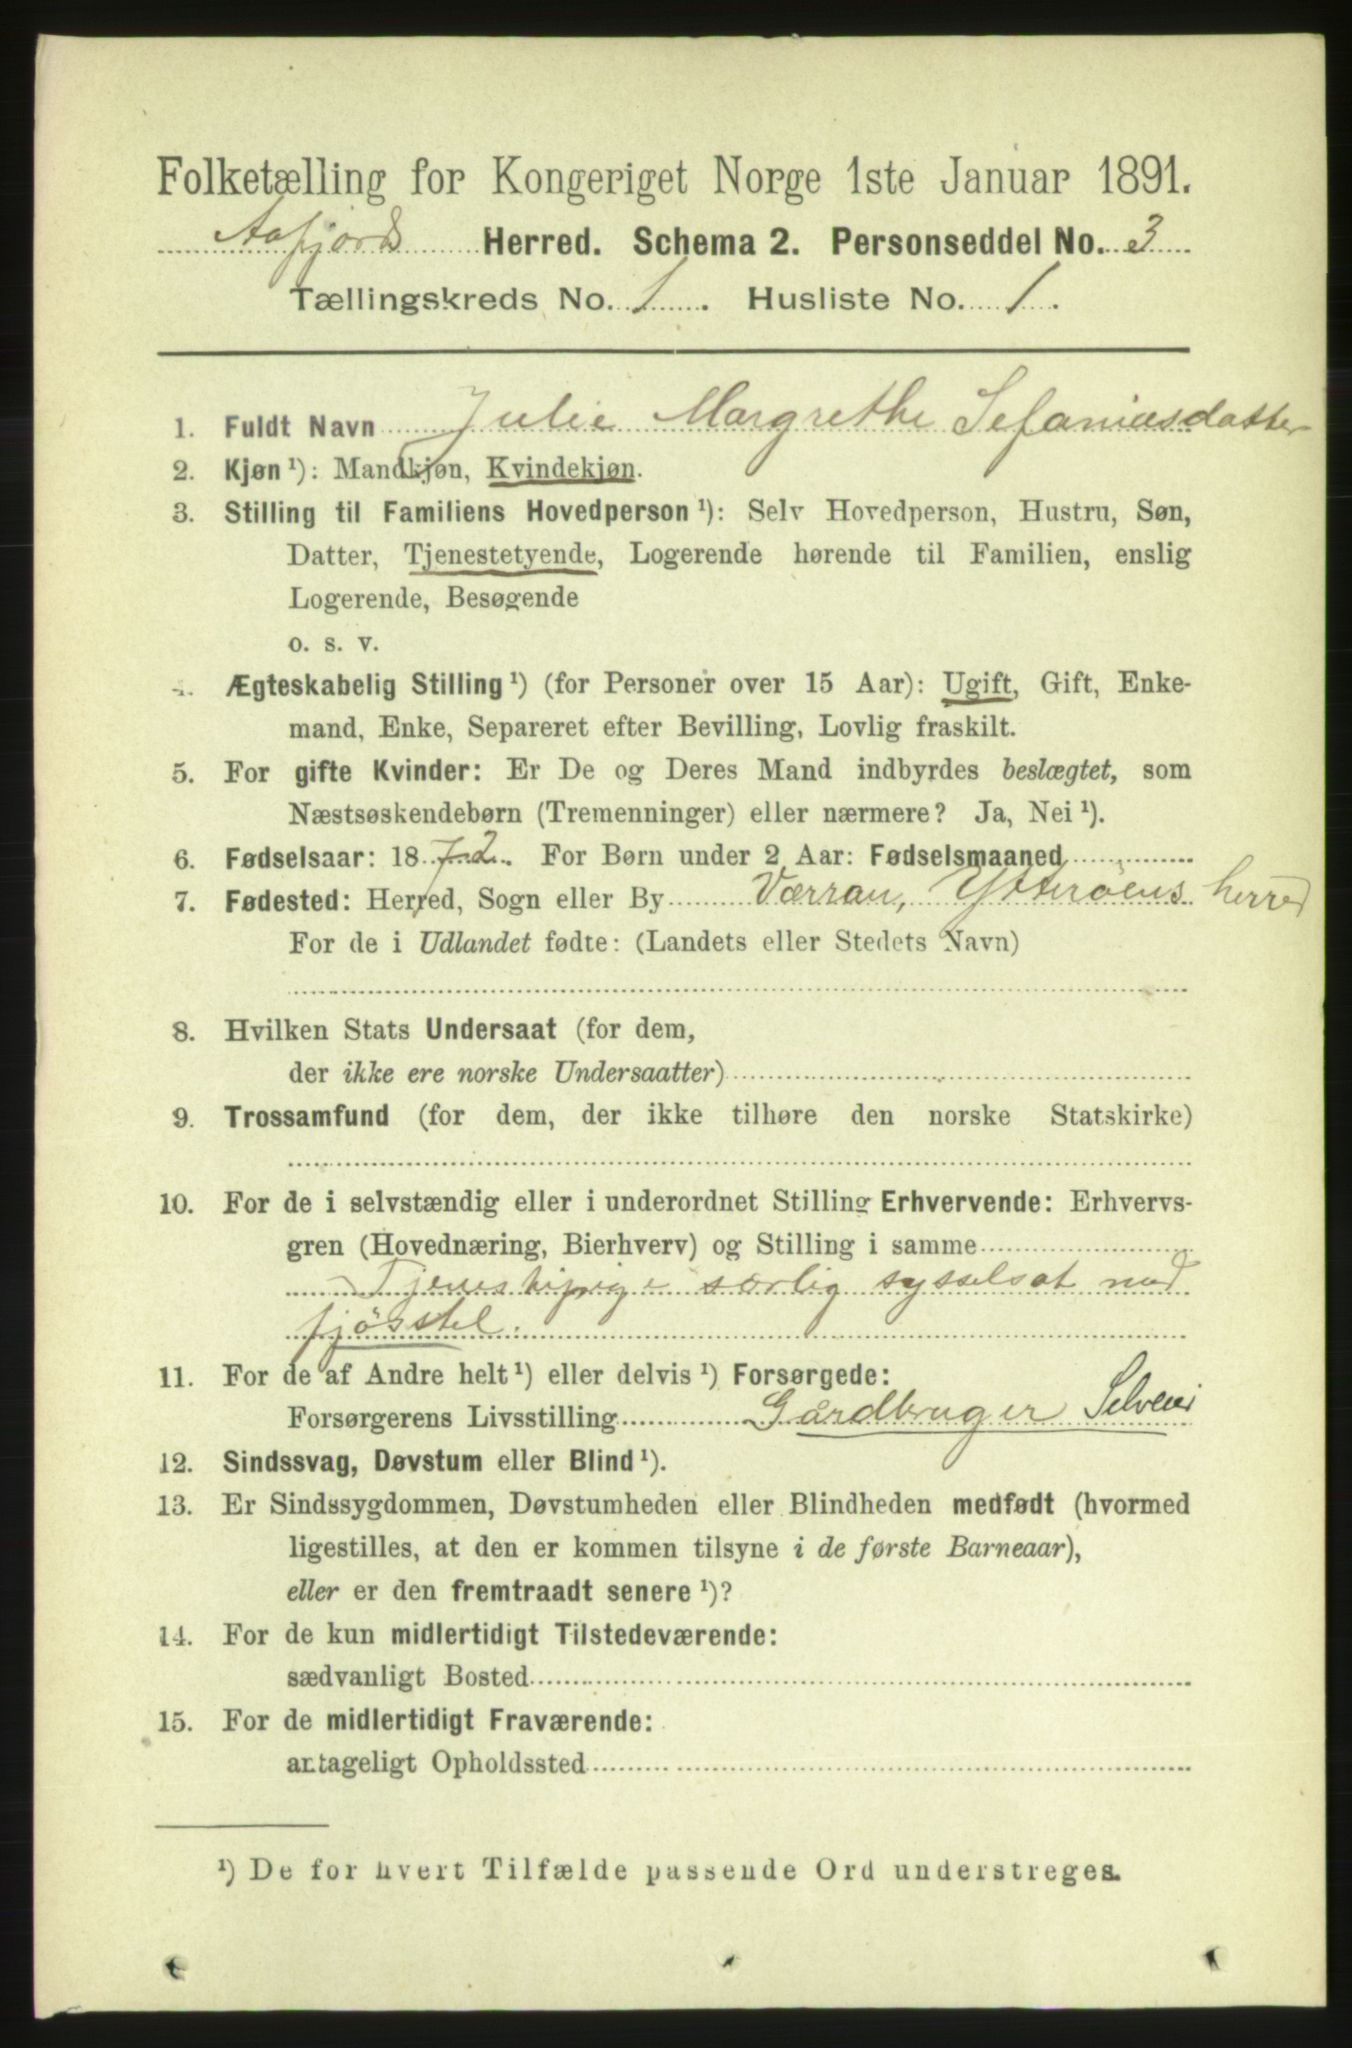 Folketælling for Kongeriget Norge 1ste Januar 1891.
Aafjord Herred. Schema 2. Personseddel No. 3
Tællingskreds No. 1. Husliste No. 1.
1. Fuldt Navn Julie Margrethe Sefaniasdatter
2. Kjøn ¹): Mandkjøn, Kvindekjøn.
3. Stilling til Familiens Hovedperson ¹): Selv Hovedperson, Hustru, Søn,
Datter, Tjenestetyende, Logerende hørende til Familien, enslig
Logerende, Besøgende
o. s. v.
4. Ægteskabelig Stilling ¹) (for Personer over 15 Aar): Ugift, Gift, Enke-
mand, Enke, Separeret efter Bevilling, Lovlig fraskilt.
5. For gifte Kvinder: Er De og Deres Mand indbyrdes beslægtet, som
Næstsøskendebørn (Tremenninger) eller nærmere? Ja, Nei ¹).
6. Fødselsaar: 1872. For Børn under 2 Aar: Fødselsmaaned
7. Fødested: Herred, Sogn eller By Værran, Ytterøens herred
For de i Udlandet fødte: (Landets eller Stedets Navn)
8. Hvilken Stats Undersaat (for dem,
der ikke ere norske Undersaatter)
9. Trossamfund (for dem, der ikke tilhøre den norske Statskirke)
10. For de i selvstændig eller i underordnet Stilling Erhvervende: Erhvervs-
gren (Hovednæring, Bierhverv) og Stilling i samme
Tjenestepige særlig sysselsat med
fjøsstel.
11. For de af Andre helt ¹) eller delvis ¹) Forsørgede:
Forsørgerens Livsstilling Gårdbruger Selveier
12. Sindssvag, Døvstum eller Blind ¹).
13. Er Sindssygdommen, Døvstumheden eller Blindheden medfødt (hvormed
ligestilles, at den er kommen tilsyne i de første Barneaar),
eller er den fremtraadt senere ¹)?
14. For de kun midlertidigt Tilstedeværende:
sædvanligt Bosted
15. For de midlertidigt Fraværende:
antageligt Opholdssted
¹) De for hvert Tilfælde passende Ord understreges.